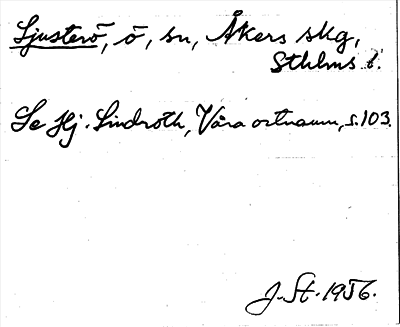 Ljusterö, ö, sn, Åkers skg,
Sthlms l.
Se Hj. Lindroth, Våra ortnamn, s. 103.
J. St. 1956.